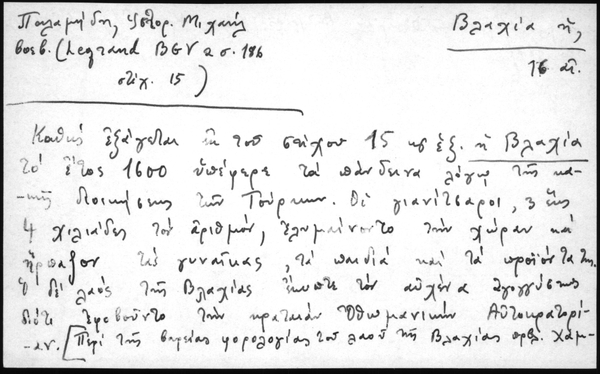 Παλαμήδης, Ἱστορ. Μιχαήλ
βοεβ. (Legrand BGV 2 σ. 186
στίχ. 15)
Βλαχία ἡ,
16 αἰ.
Καθὼς ἐξάγεται ἐκ τοῦ στίχου 15 κἑ ἑξ. ἡ Βλαχία
τὸ ἔτος 1600 ὑπέφερε τὰ πάνδεινα λόγῳ τῆς κα-
-κῆς διοικήσεως τῶν Τούρκων. Οἱ γιανίτσαροι, 3 ἕως
4 χιλιάδες τὸν ἀριθμόν, ἐλυμαίνοντο τὴν χώραν καὶ
ἥρπαζον τὰς γυναῖκας, τὰ παιδιὰ καὶ τὰ προϊόντα της.
Ὁ δὲ λαὸς τῆς Βλαχίας ἔκυπτε τὸν αὐχένα ἀγογγύστως
διότι ἐφοβοῦντο τὴν κραταιὰν Ὀθωμανικὴν Αὐτοκρατορί-
-αν. [Περὶ τῆς βαρείας φορολογίας τοῦ λαοῦ τῆς Βλαχίας πρβλ. Χαμ-